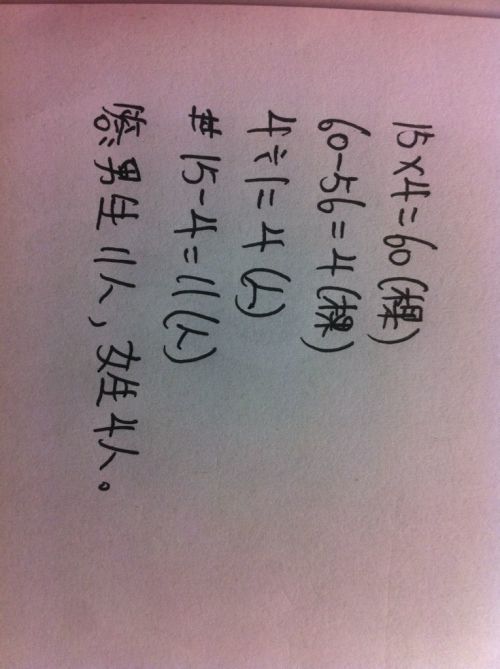 15×4=60(棵)
60-56=4(棵)
4÷1=4(人)
# 15-4=11(人)
答:男生11人,女生4人。